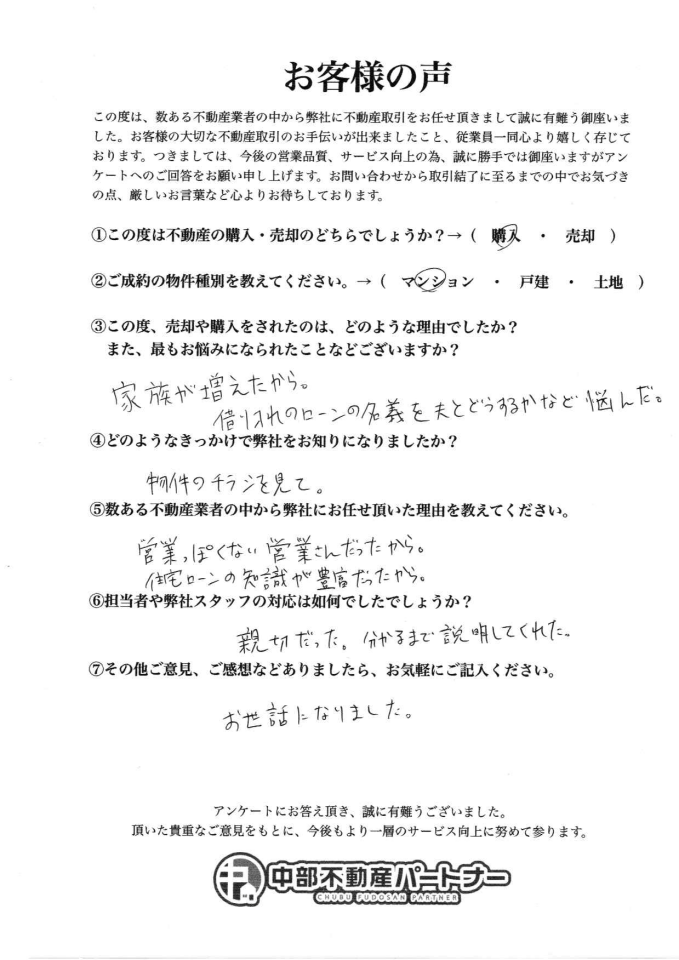 お客様の声
この度は、数ある不動産業者の中から弊社に不動産取引をお任せ頂きまして誠に有難う御座いま
した。お客様の大切な不動産取引のお手伝いが出来ましたこと、従業員一同心より嬉しく存じて
おります。つきましては、今後の営業品質、サービス向上の為、誠に勝手では御座いますがアン
ケートへのご回答をお願い申し上げます。お問い合わせから取引結了に至るまでの中でお気づき
の点、厳しいお言葉など心よりお待ちしております。
①この度は不動産の購入・売却のどちらでしょうか？→（　購入　・　売却　）
②ご成約の物件種別を教えてください。→（　マンション　・　戸建　・　土地　）
③この度、売却や購入をされたのは、どのような理由でしたか？
また、最もお悩みになられたことなどございますか？
家族が増えたから。
借り入れのローンの名義を夫とどうするかなど悩んだ。
④どのようなきっかけで弊社をお知りになりましたか？
物件のチラシを見て。
⑤数ある不動産業者の中から弊社にお任せ頂いた理由を教えてください。
営業っぽくない営業さんだったから。
住宅ローンの知識が豊富だったから。
⑥担当者や弊社スタッフの対応は如何でしたでしょうか？
親切だった。分かるまで説明してくれた。
⑦その他ご意見、ご感想などありましたら、お気軽にご記入ください。
お世話になりました。
アンケートにお答え頂き、誠に有難うございました。
頂いた貴重なご意見をもとに、今後もより一層のサービス向上に努めて参ります。
中部不動産パートナー
CHUBU FUDOSAN PARTNER